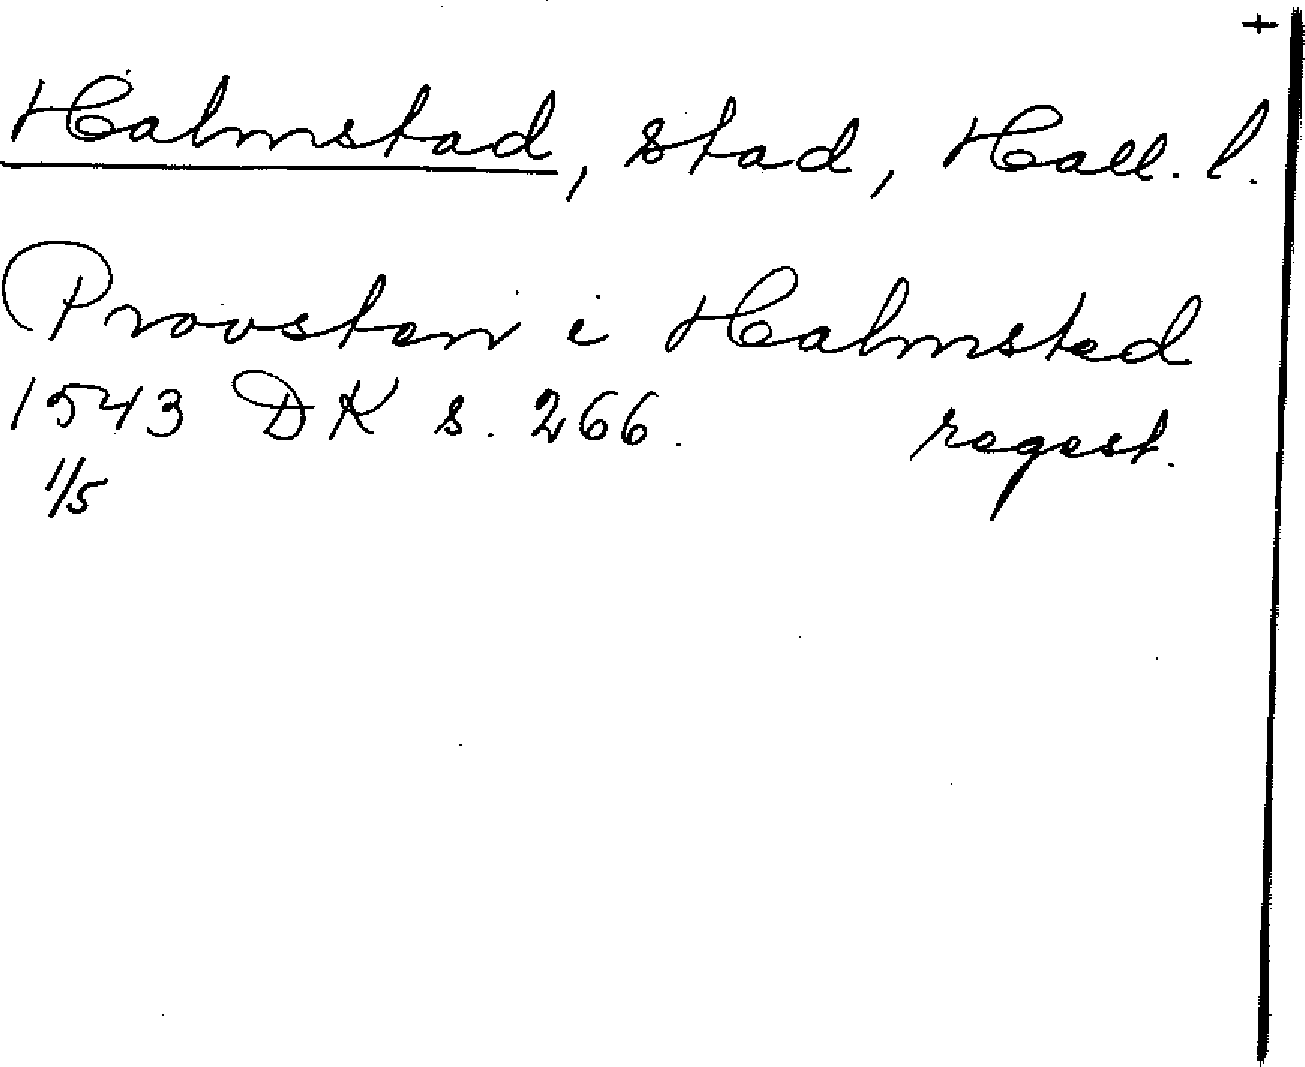 +
Halmstad, stad, Hall. l.
Provsten i Halmsted
1543 DK s. 266. regest.
1/5